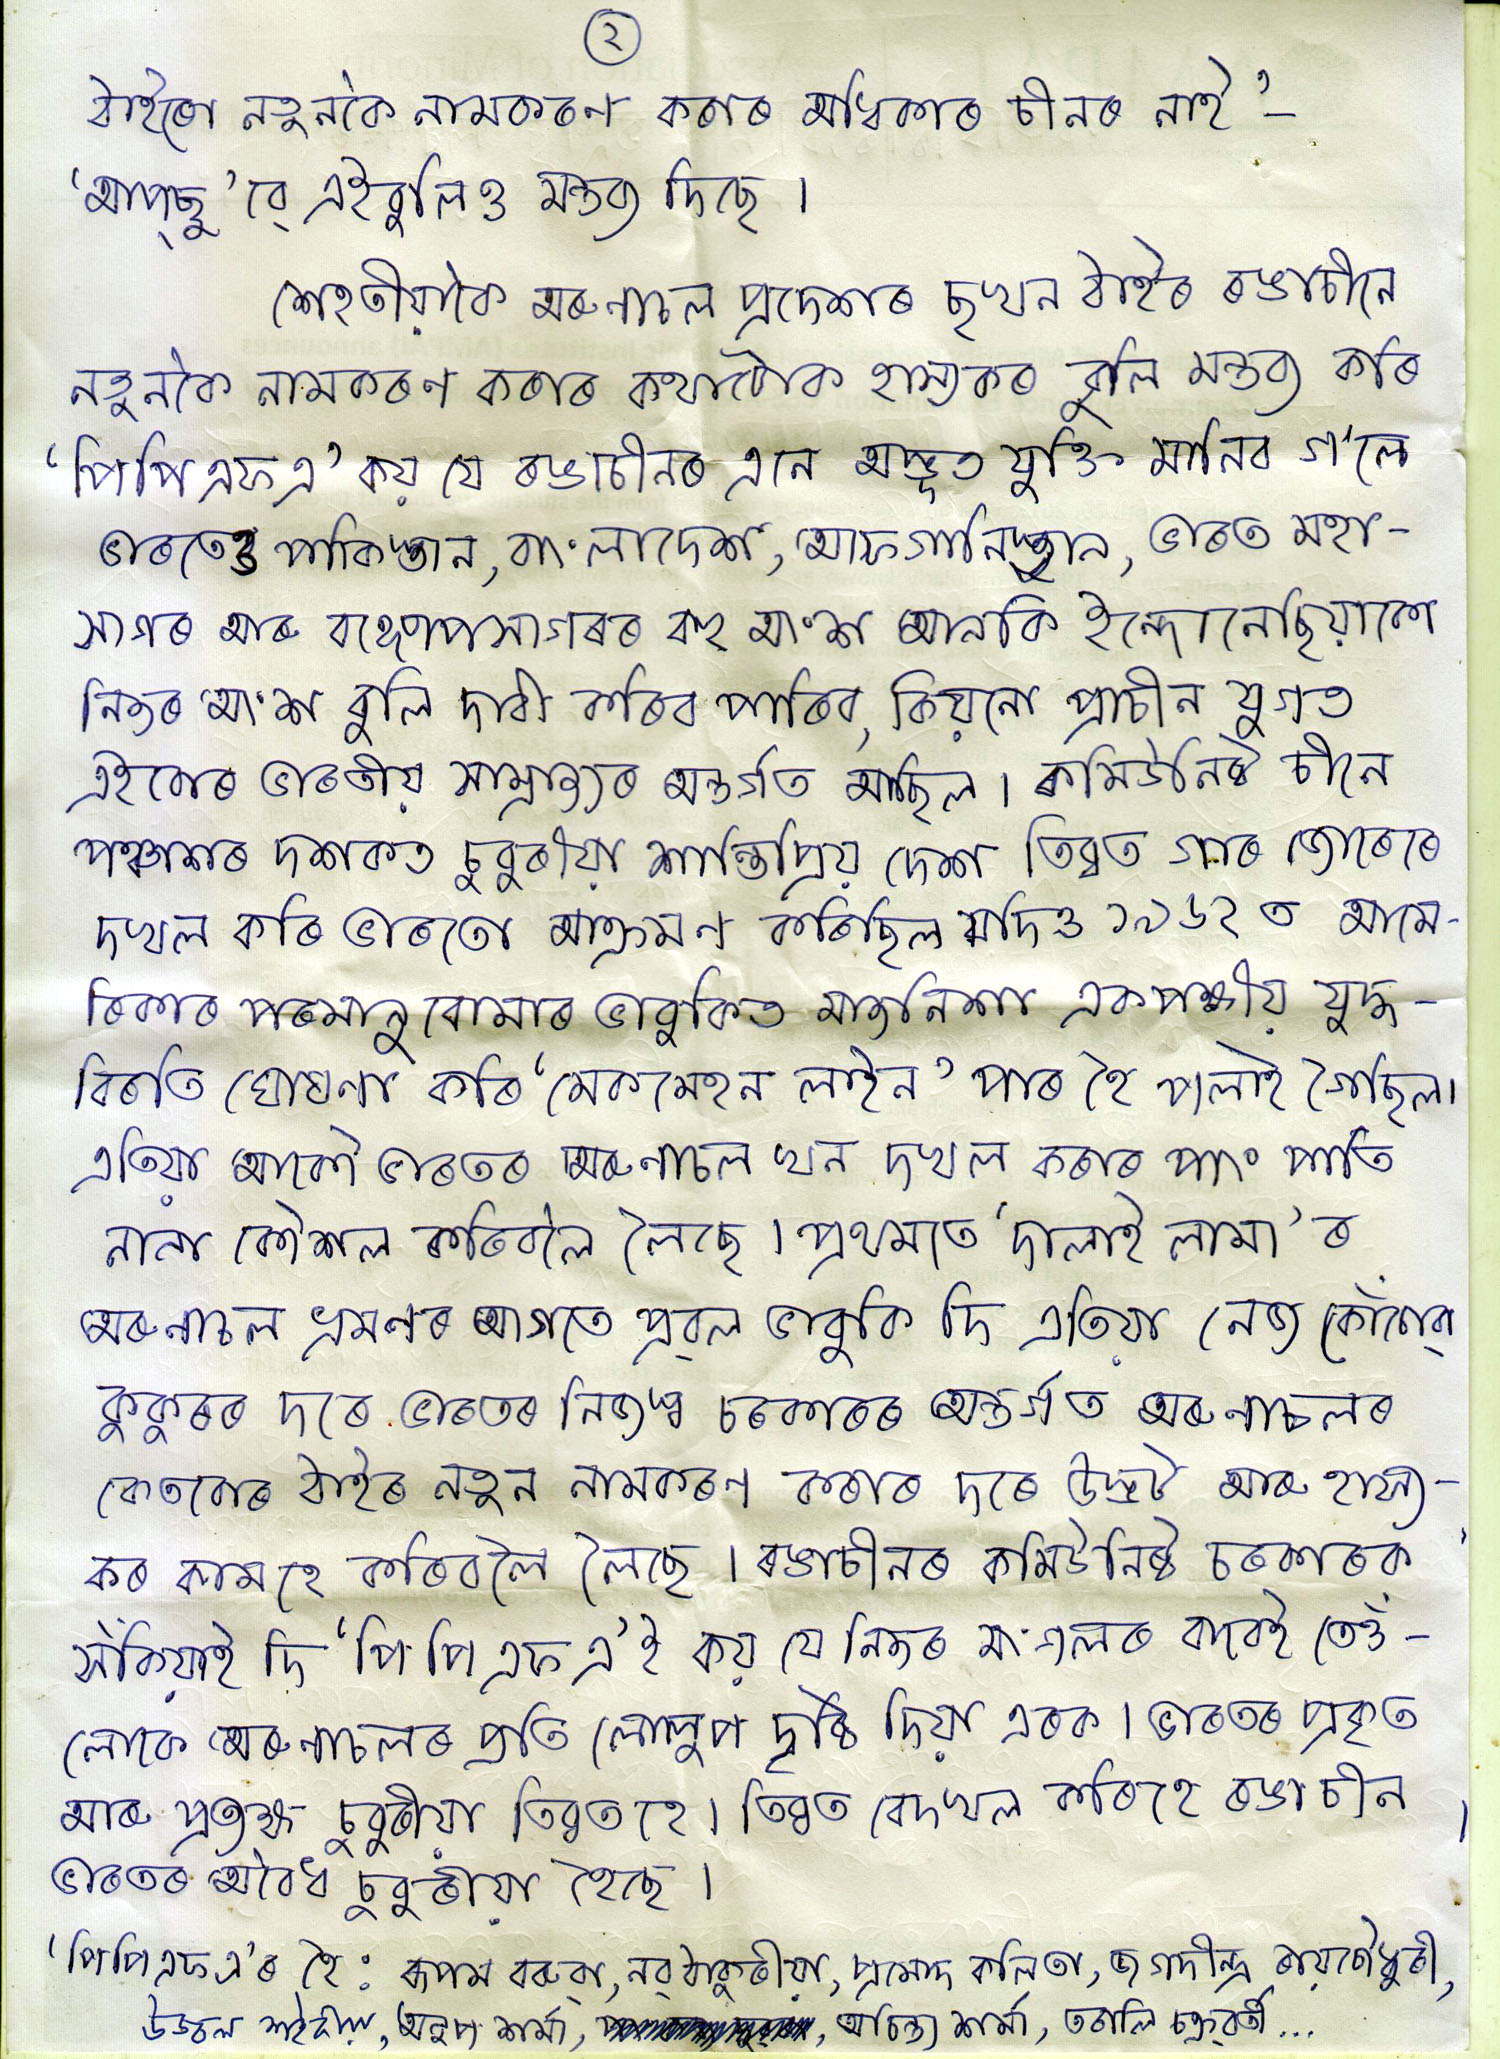 ২
ঠাইৰো নতুনকৈ নামকৰণ কৰাৰ অধিকাৰ চীনৰ নাই’–
‘আপ্‌ছু’ৱে এইবুলিও মন্তব্য দিছে।
শেহতীয়াকৈ অৰুণাচল প্ৰদেশৰ ছখন ঠাইৰ ৰঙাচীনে
নতুনকৈ নামকৰণ কৰাৰ কথাটোক হাস্যকৰ বুলি মন্তব্য কৰি
‘পিপিএফএ’ কয় যে ৰঙাচীনৰ এনে অদ্ভূত যুক্তি মানিব গ’লে
ভাৰতেও পাকিস্তান, বাংলাদেশ, আফগানিস্থান, ভাৰত মহা-
সাগৰ আৰু বঙ্গোপসাগৰৰ বহু অংশ আনকি ইন্দোনেছিয়াকো
নিজৰ অংশ বুলি দাবী কৰিব পাৰিব, কিয়নো প্ৰাচীন যুগত
এইবোৰ ভাৰতীয় সাম্ৰাজ্যৰ অন্তৰ্গত আছিল। কমিউনিষ্ট চীনে
পঞ্চাশৰ দশকত চুবুৰীয়া শান্তিপ্ৰিয় দেশ তিব্বত গাৰ জোৰেৰে
দখল কৰি ভাৰতো আক্ৰমণ কৰিছিল যদিও ১৯৬২ ত আমে-
ৰিকাৰ পৰমানু বোমাৰ ভাবুকিত মাজনিশা একপক্ষীয় যুদ্ধ-
বিৰতি ঘোষণা কৰি ‘মেকমেহন লাইন’ পাৰ হৈ পলাই গৈছিল।
এতিয়া আকৌ ভাৰতৰ অৰুণাচল খন দখল কৰাৰ পাং পাতি
নানা কৌশল কৰিবলৈ লৈছে। প্ৰথমতে ‘দালাই লামা’ৰ
অৰুণাচল ভ্ৰমণৰ আগতে প্ৰৱল ভাবুকি দি এতিয়া নেজ কোঁচোৱা
কুকুৰৰ দৰে ভাৰতৰ নিজস্ব চৰকাৰৰ অন্তৰ্গত অৰুণাচলৰ
কেতবোৰ ঠাইৰ নতুন নামকৰণ কৰাৰ দৰে উদ্ভট আৰু হাস্য-
কৰ কামহে কৰিবলৈ লৈছে। ৰঙাচীনৰ কমিউনিষ্ট চৰকাৰক
সঁকিয়াই দি ‘পিপিএফএ’ই কয় যে নিজৰ মংগলৰ বাবেই তেওঁ-
লোকে অৰুণাচলৰ প্ৰতি লোলুপ দৃষ্টি দিয়া এৰক। ভাৰতৰ প্ৰকৃত
আৰু প্ৰত্যক্ষ চুবুৰীয়া তিব্বতহে। তিব্বত বেদখল কৰিহে ৰঙাচীন
ভাৰতৰ অবৈধ চুবুৰীয়া হৈছে।
‘পিপিএফএ’ৰ হৈ: ৰূপম বৰুৱা, নৱ ঠাকুৰীয়া, প্ৰমোদ কলিতা, জগদীন্দ্ৰ ৰায়চৌধুৰী,
উজ্জল শইকীয়া, অনুপ শৰ্মা, অচিন্ত্য শৰ্মা, তৰালি চক্ৰৱৰ্তী...